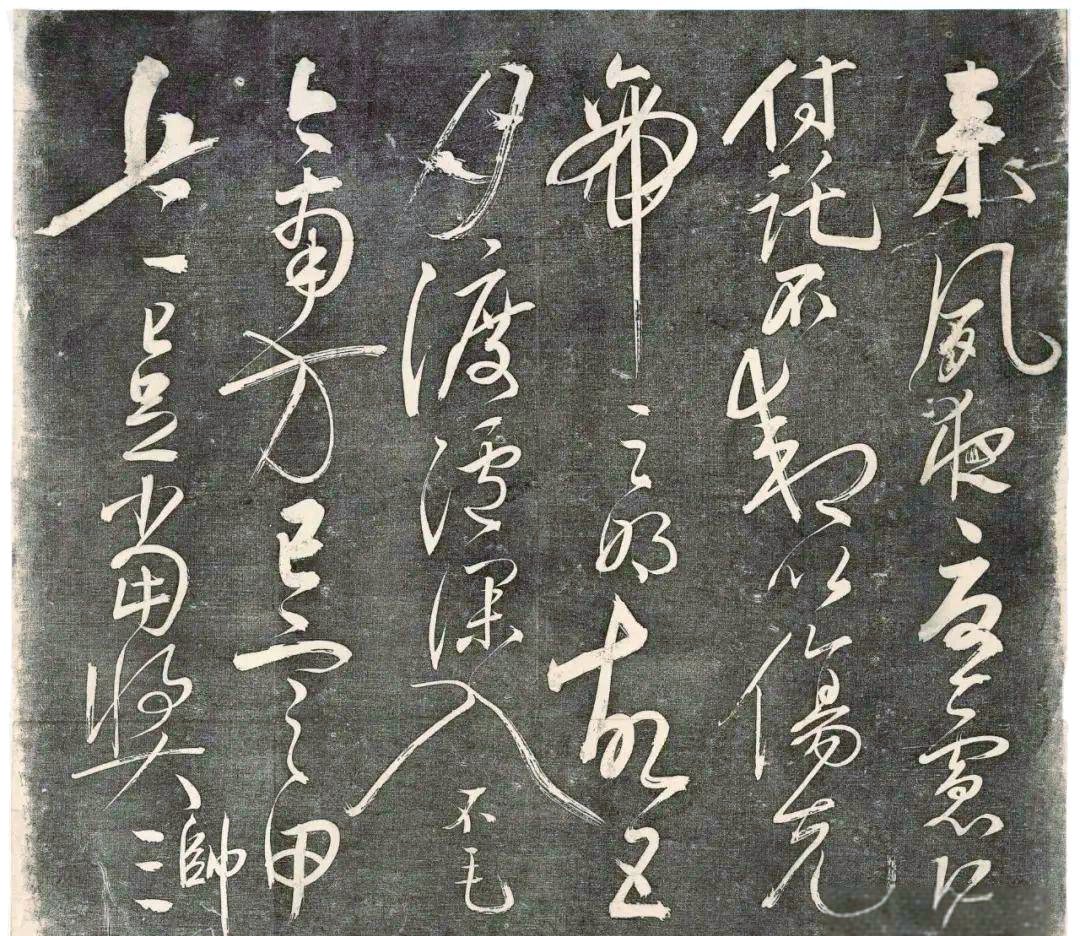 来夙夜憂慮恐
付託不效以傷先
帝之明故五
月渡瀘深入不毛
今南方已定甲
兵已足當獎帥三